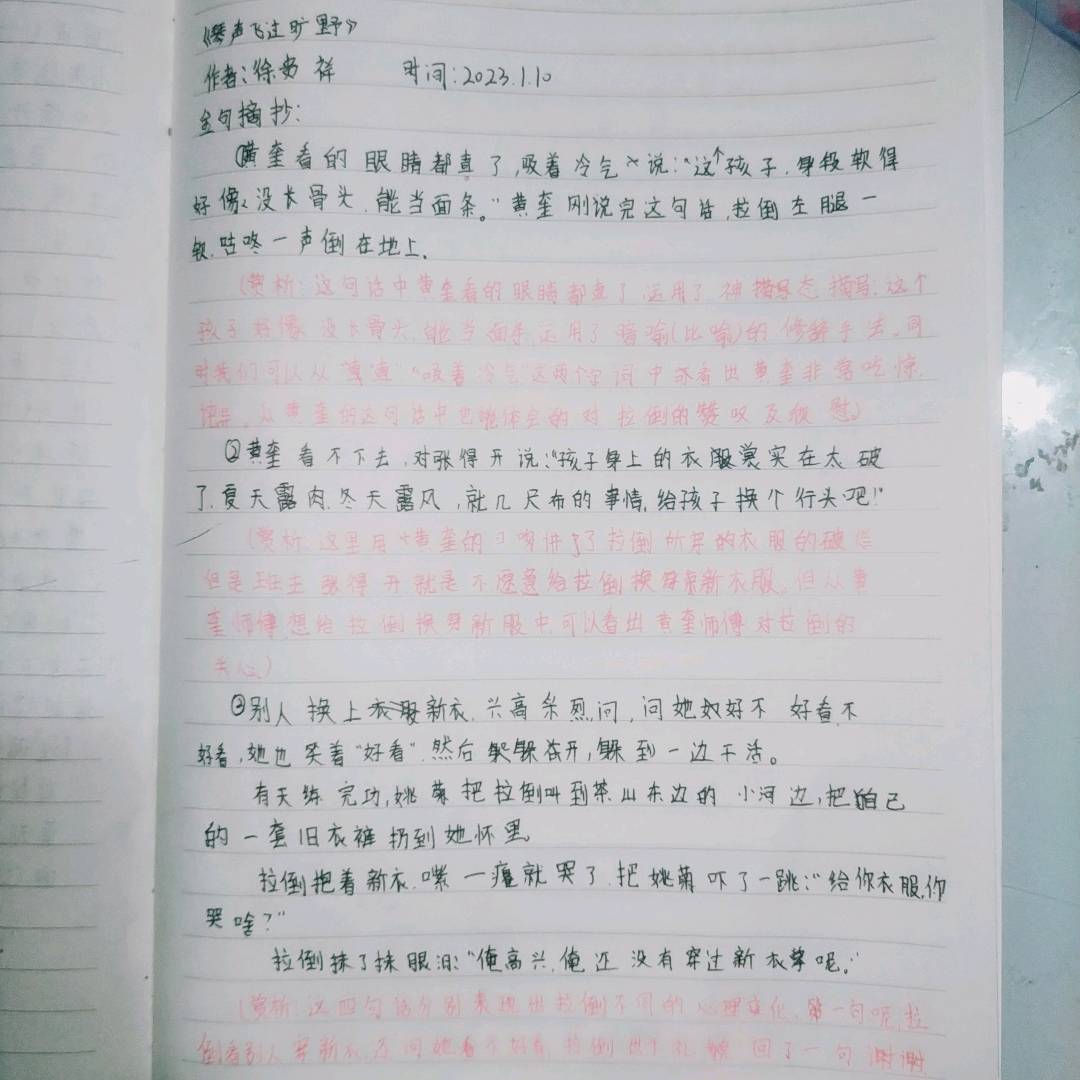 《琴声飞过旷野》
作者:徐贵祥 时间:2023.1.10
金句摘抄:
①黄奎看的眼睛都直了,吸着冷气说:"这个孩子,身段软得
好像没长骨头,能当面条。"黄奎刚说完这句话,拉倒左腿一
软,咕咚一声倒在地上.
(赏析:这句话中黄奎看的眼睛都直了运用了神态描写,这个
孩子好像没长骨头,能当面条运用了暗喻(比喻)的修辞手法。同
时我们可以从"直""吸着冷气"这两个字词中看出黄奎非常吃惊
从黄奎的这句话中也能体会的对拉倒的赞叹及)
②黄奎看不下去,对张得开说:"孩子身上的衣服裳实在太破
了,夏天露肉,冬天露风,就几尺布的事情,给孩子换个行头吧!"
(赏析:这里用黄奎的口吻讲了拉倒所穿的衣服的破
但是班主张得开就是不愿意给拉倒换身新衣服,但从黄
奎师傅想给拉倒换身新服中可以看出黄奎师傅对拉倒的
关心)
③别人换上新衣,兴高采烈,问,问她好不好看,不
好看,她也笑着"好看".然后躲开,躲到一边干活。
有天练完功,姚菊把拉倒叫到茶山东边的小河边,把自己
的一套旧衣裤扔到她怀里
拉倒抱着新衣,嘴一瘪就哭了,把姚菊吓了一跳:"给你衣服,你
哭啥?"
拉倒抹了抹眼泪:"俺高兴,俺还没有穿过新衣裳呢。"
(赏析:这四句话分别表现出拉倒不同的心理变化,第一句呢,拉
倒看别人穿新衣,不问她看不好看,拉倒出于礼貌回了一句谢谢